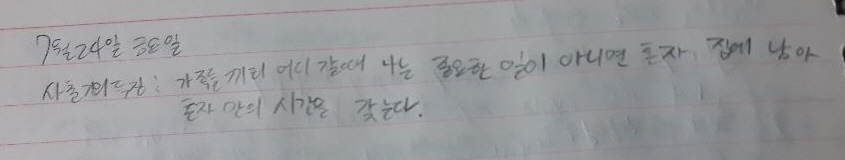 7월 24일 금요일
사춘기의 특징: 가족들 끼리 어디 갈때 나는 중요한 일이 아니면 혼자 집에 남아
혼자 만의 시간을 갖는다.